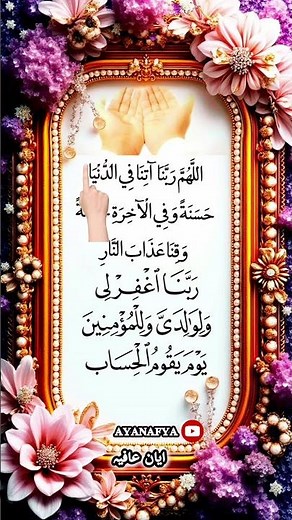 اللَّهُمَّ رَبَّنَا آتِنَا فِي الدُّنْيَا
حَسَنَةً وَفِي الْآخِرَةِ
وَقِنَا عَذَابَ النَّارِ
رَبَّنَا ٱغْفِرْ لِى
وَلِوَٰلِدَىَّ وَلِلْمُؤْمِنِينَ
يَوْمَ يَقُومُ ٱلْحِسَابُ
AYANAFYA
ایان عافیہ